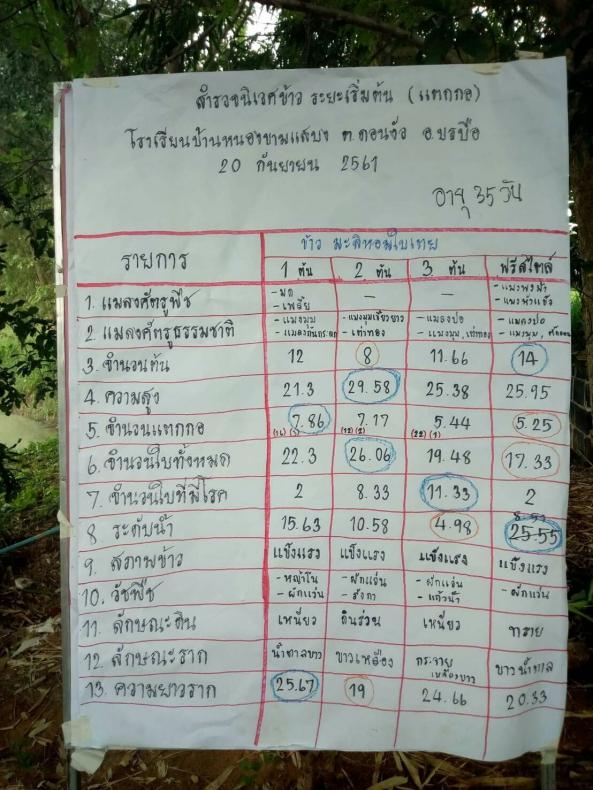 สำรวจนิเวศข้าว ระยะเริ่มต้น (แตกกอ)
โรงเรียนบ้านหนองขามแสบง ต.ดอนงัว อ.บรบือ
20 กันยายน 2561
อายุ 35 วัน
รายการ ข้าว มะลิหอมใบเตย
1 ต้น 2 ต้น 3 ต้น ฟรีสไตล์
1. แมลงศัตรูพืช - มด - เพลี้ย — —
2. แมลงศัตรูธรรมชาติ - แมงมุม - แมงมุมเขี้ยวยาว - เต่าทอง - แมลงปอ - แมงมุม, เต่าทอง - แมลงปอ - แมงมุม,
3. จำนวนต้น 12 8 11.66 14
4. ความสูง 21.3 29.58 25.38 25.95
5. จำนวนแตกกอ 7.86 7.17 5.44 5.25
6. จำนวนใบทั้งหมด 22.3 26.06 19.48 17.33
7. จำนวนใบที่มีโรค 2 8.33 11.33 2
8 ระดับน้ำ 15.63 10.58 4.98 25.55
9. สภาพข้าว แข็งแรง แข็งแรง แข็งแรง แข็งแรง
10. วัชพืช - ผักแว่น - ผักแว่น - ผักแว่น - ผักแว่น
11. ลักษณะดิน เหนียว ดินร่วน เหนียว ทราย
12. ลักษณะราก น้ำตาลขาว ขาวเหลือง กระจาย เหลืองขาว ขาวน้ำตาล
13. ความยาวราก 25.67 19 24.66 20.33